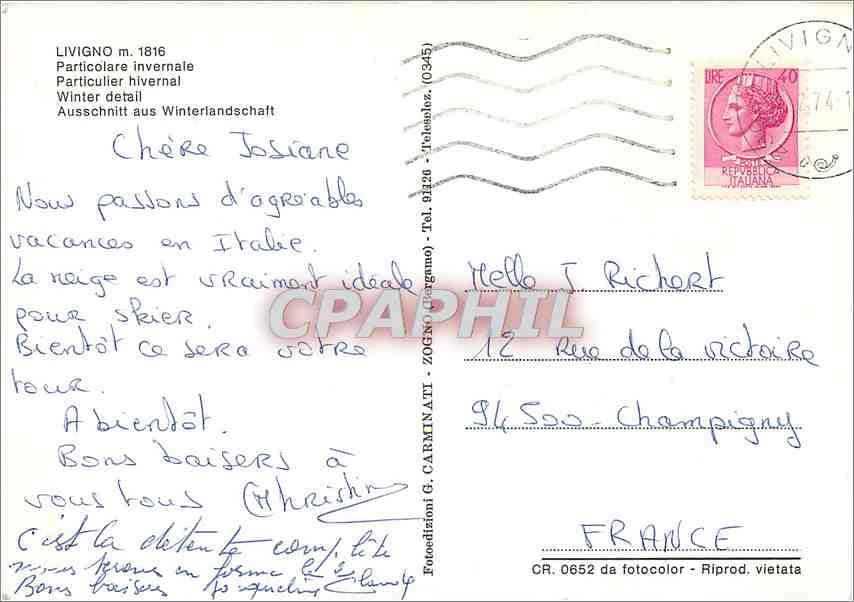 LIVIGNO m. 1816
Particolare invernale
Particulier hivernal
Winter detail
Ausschnitt aus Winterlandschaft
Chère Josiane
Nous passons d'agréables
vacances en Italie.
La neige est vraiment idéale
pour skier.
Bientôt ce sera votre
tour.
A bientôt.
Bons baisers à
vous tous Christin
c'est la détente complète
nous serons en forme
Bons baisers Jacqueline Claude
Fotoedizioni G. CARMINATI - ZOGNO (Bergamo) - Tel. 91126 - Teleselez. (0345)
LIRE 40
POSTE
REPVBBLICA
ITALIANA
LIVIGN
2.74-1
CPAPHIL
Melle J. Richert
12 Rue de la victoire
94500 - Champigny
FRANCE
CR. 0652 da fotocolor - Riprod. vietata